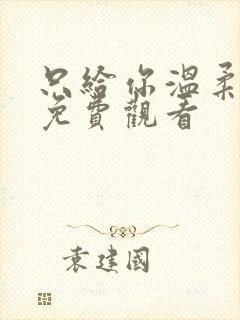 只給你溫柔
免費觀看
袁建國